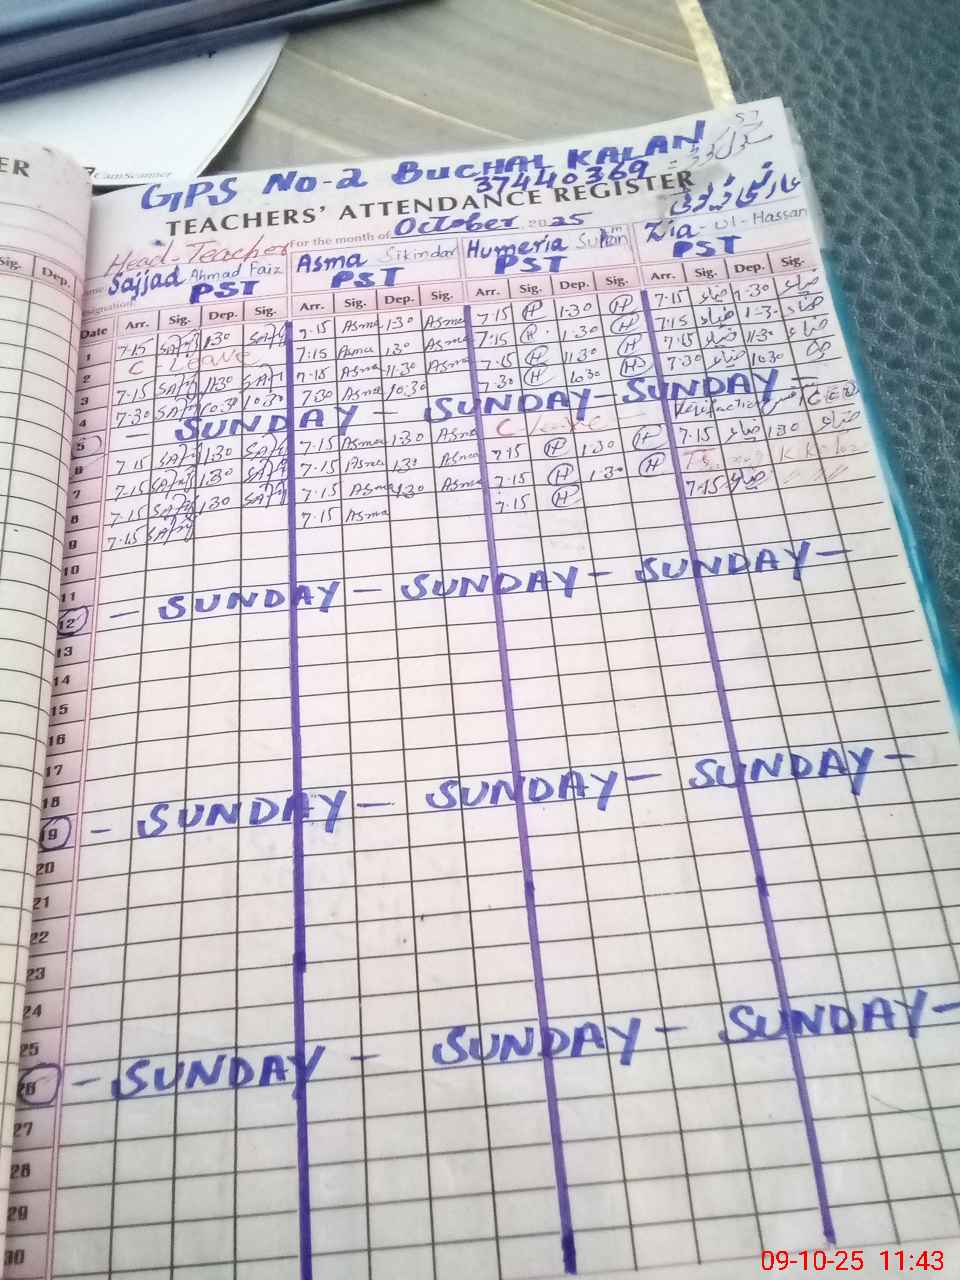 ER
CamScanner
GPS No-2 BUCHAL KALAN
37440369
TEACHERS' ATTENDANCE REGISTER
For the month of October 2025
Head-Teacher
Sajjad Ahmad Faiz Asma Sikindar Humeria Zia-ul-Hassan
PST PST PST PST
Sig. Dep.
Date Arr. Sig. Dep. Sig. Arr. Sig. Dep. Sig. Arr. Sig. Dep. Sig. Arr. Sig. Dep. Sig.
1 7-15 1:30 7-15 Asma 1:30 Asma 7-15 H 1-30 H 7-15 ضیاء 1:30 ضیاء
2 C-Leave 7:15 Asma 1:30 Asma 7-15 H 1:30 H 7:15 ضیاء 1-30 ضیاء
3 7-15 11:30 7-15 Asma 11:30 Asma 7-15 H 11:30 H 7-15 ضیاء 11:30 ضیاء
4 7-30 10:30 7:30 Asma 10:30 7-30 H 10:30 H 7:30 ضیاء 10:30
5 - SUNDAY - SUNDAY - SUNDAY -
6 7-15 1:30 7-15 Asma 1:30 Asma C-Leave
7 7-15 1:30 7-15 Asma 1:30 Asma 7-15 H 1:30 H 7-15 ضیاء 1:30 ضیاء
8 7-15 1:30 7-15 Asma 1:30 Asma 7-15 H 1-30 H
9 7-15 7-15 Asma 7-15 H 7-15 ضیاء
10
11
12 - SUNDAY - SUNDAY - SUNDAY -
13
14
15
16
17
18
19 - SUNDAY - SUNDAY - SUNDAY -
20
21
22
23
24
25
26 - SUNDAY - SUNDAY - SUNDAY -
27
28
29
30
09-10-25 11:43